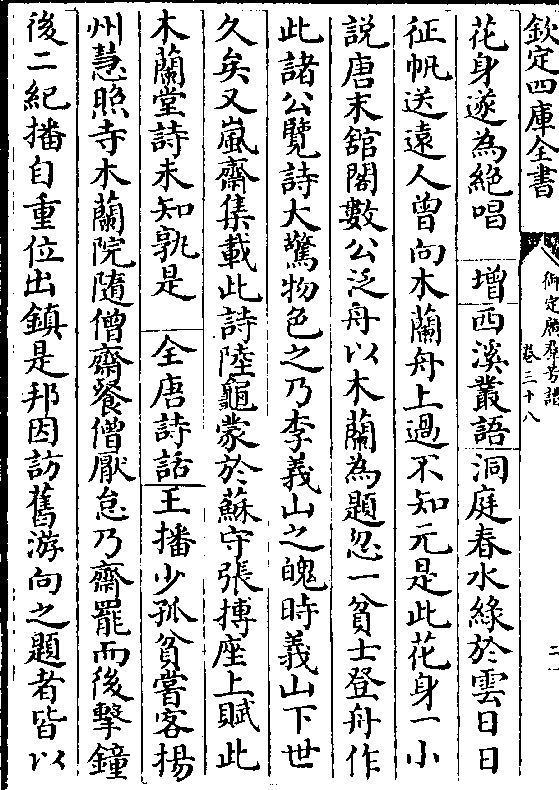 欽定四庫全書
御定廣羣芳譜
卷三十八
二
花身遂為絶唱　增西溪叢語洞庭春水綠於雲日日
征帆送遠人曾向木蘭舟上過不知元是此花身一小
説唐末舘閣數公泛舟以木蘭為題忽一貧士登舟作
此諸公覽詩大驚物色之乃李義山之魄時義山下世
久矣又嵐齋集載此詩陸龜蒙於蘇守張摶座上賦此
木蘭堂詩未知孰是　全唐詩話王播少孤貧嘗客揚
州慧照寺木蘭院隨僧齋餐僧厭怠乃齋罷而後擊鐘
後二紀播自重位出鎮是邦因訪舊游向之題者皆以